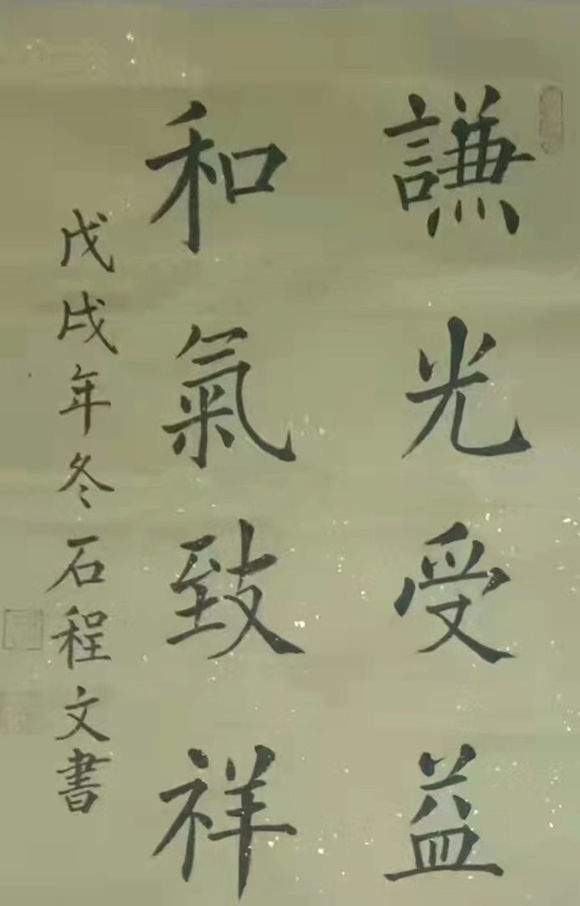 謙光受益
和氣致祥
戊戌年冬石程文書